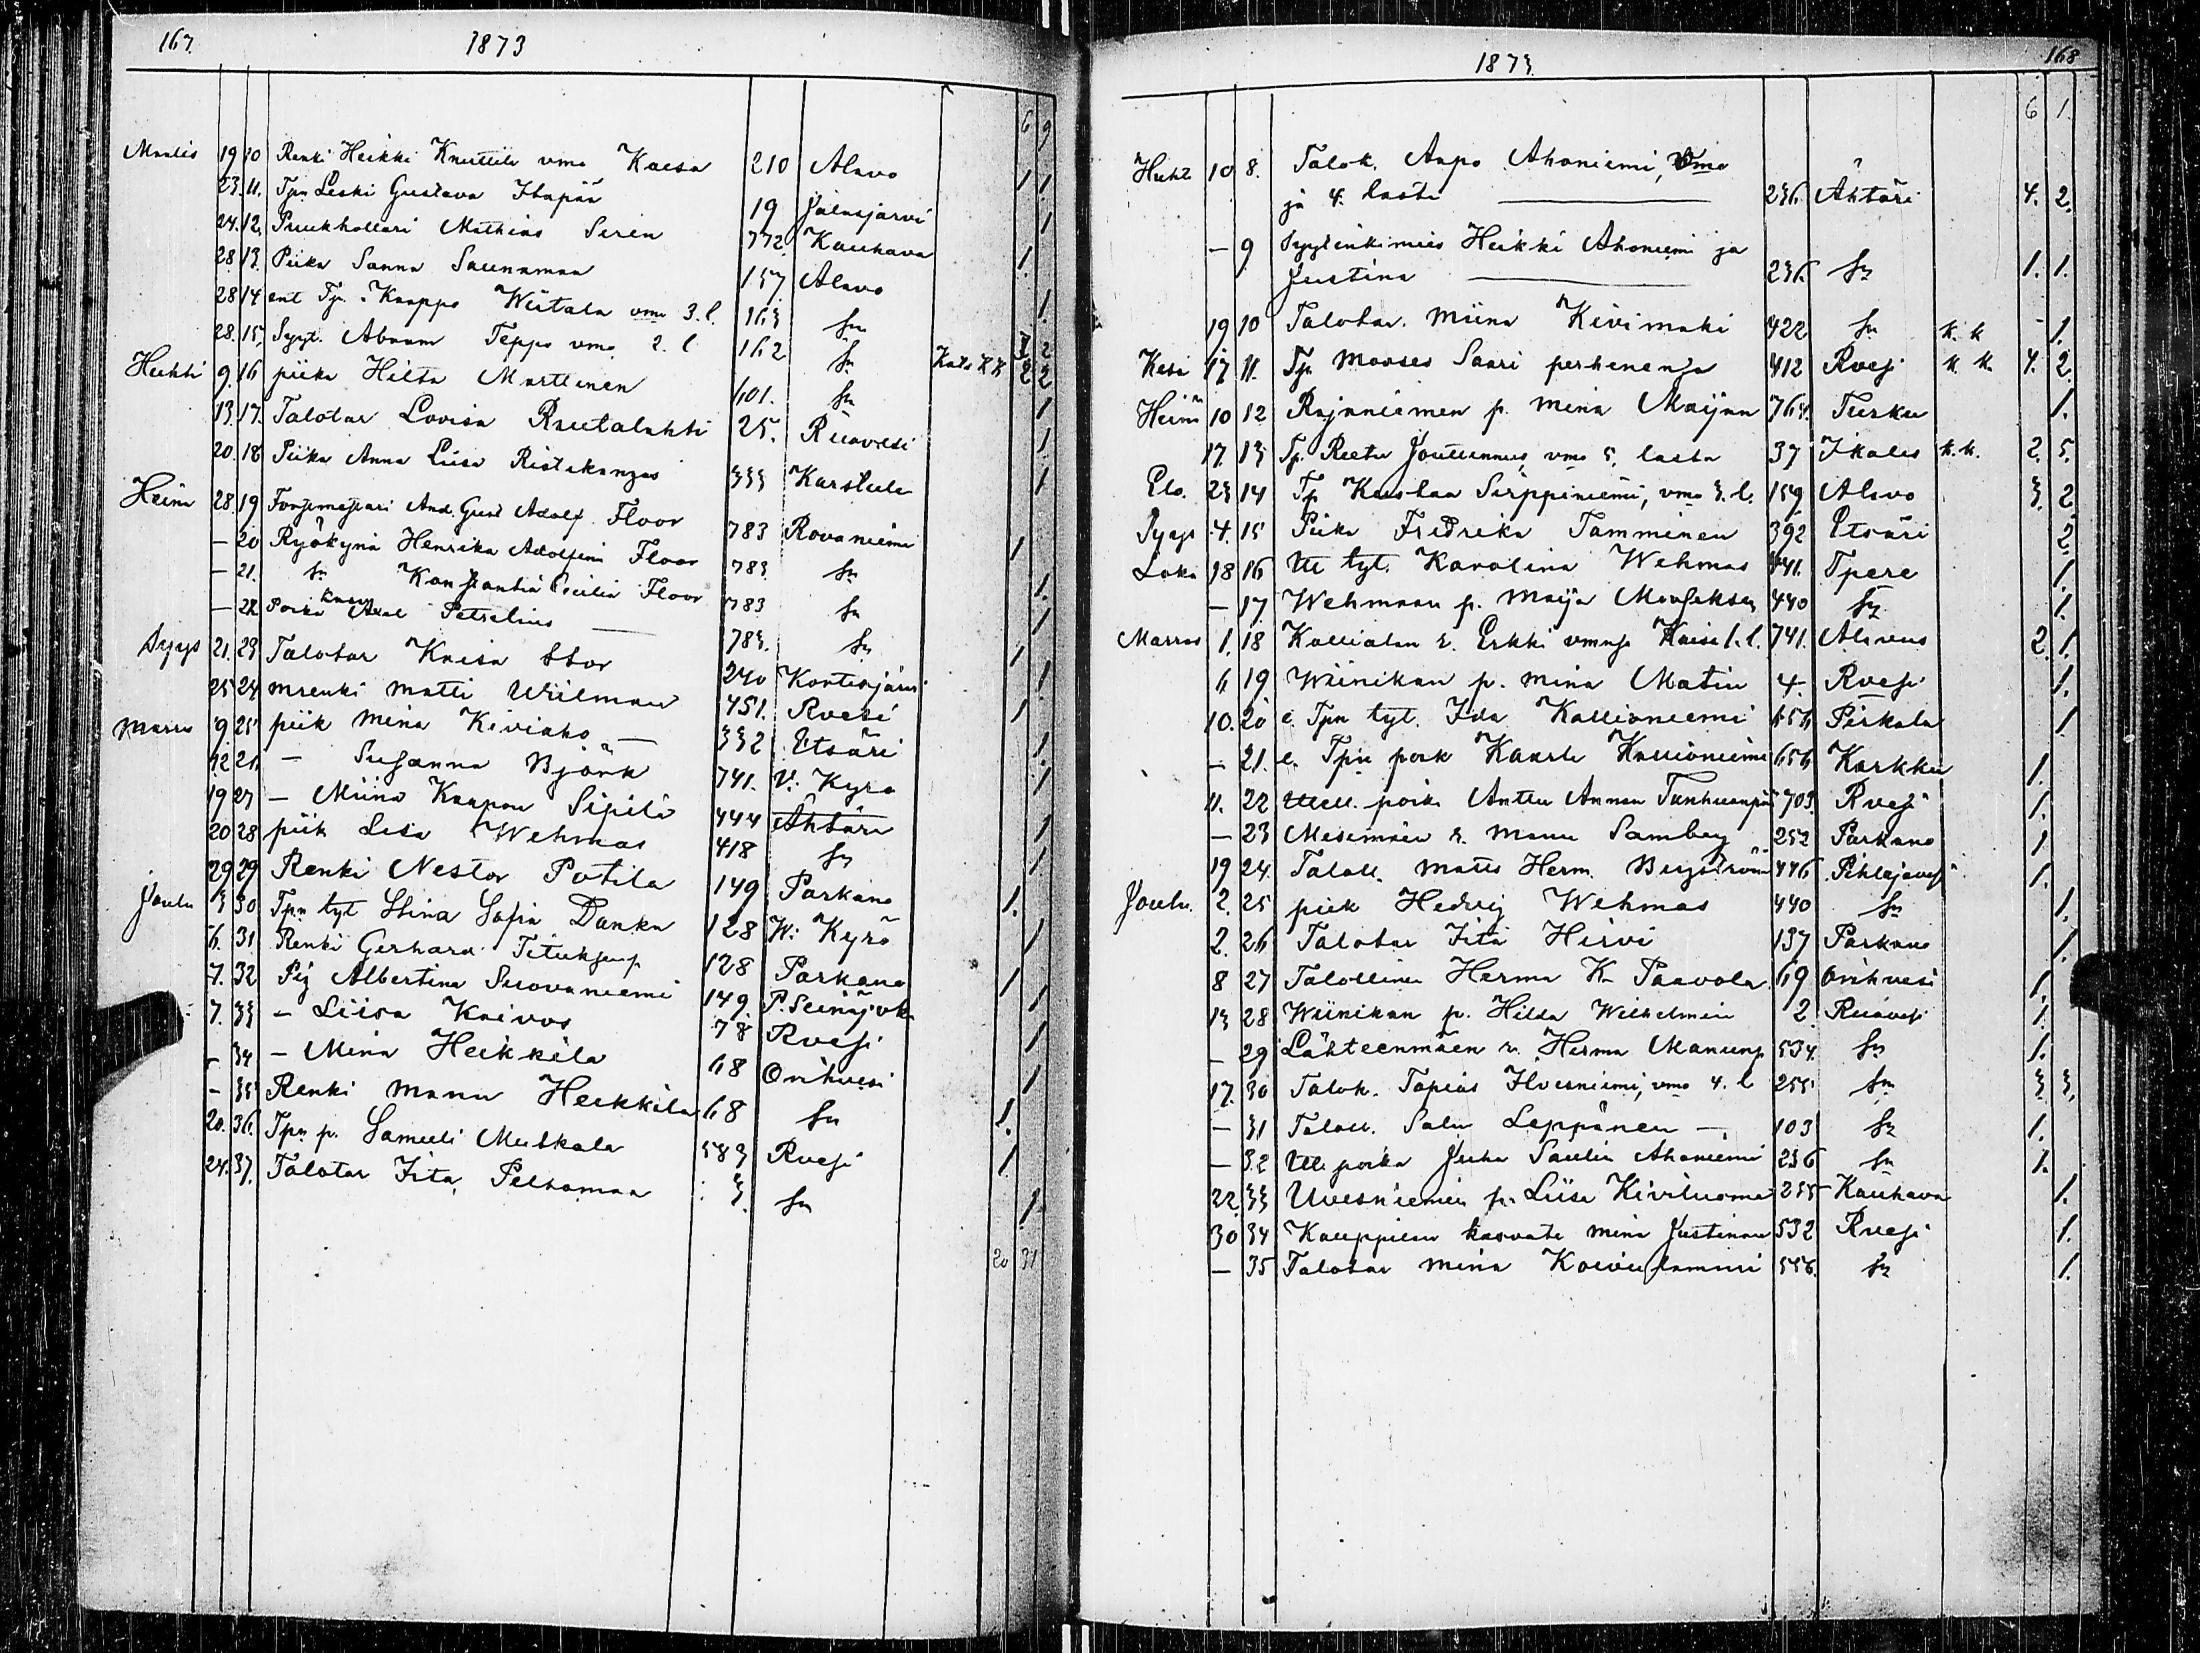 167. 1873
6 9
Maalis 19 10 Renki Heikki Knuttila vmo Kaesa 210 Alavo 1 1
23. 11. Tpn Leski Gustava Itapää 19 Jalasjärvi 1
24. 12. Puukhollari Mathias Seren 772 Kauhava 1.
28 13. Piika Sanna Saunamaa 157 Alavo 1.
28 14 ent Tp. Kaappo Wiitala vmo 3. l. 163 sn
28. 15. Syyt. Abram Teppo vmo 2. l 162 sn Kats KK 2 2
Huhti 9. 16 piika Hilta Marttinen 101. sn 1
13. 17. Talotar Lovisa Rautalahti 25. Ruovesi 1.
20. 18 Piika Anna Liisa Ristikangas 333 Karstula 1
Heinä 28. 19 And. Gust Adolf Floor 783 Rovaniemi 1
— 20 Ryökynä Henrika Adolfina Floor 783 sn 1.
— 21. sn Konstantia Cecilia Floor 783 sn 1
— 22 Poika Axel Petrelius — 783. sn 1
Syys 21. 23 Talotar Kaisa Stor 240 Kortesjärvi 1
25 24 mrenki Matti Wiilman 451. Rvesi 1
Marras 9 25 piik Mina Kiviaho — 332 Etsäri 1.
12 26 — Susanna Björk 741. V. Kyro 1
19 27 — Miina Kaapon Sipilä 444 Ähtäri 1
20 28 piik Lisa Wehmas 418 sn 1
29 29 Renki Nestor Potila 149 Parkano 1.
Joulu 3 30 Tpn tyt Stina Sofia Danka 128 W. Kyrö 1
6. 31 Renki Gerhard 128 Parkano 1
7. 32 Pig Albertina Suovaniemi 149 P. Seinäjoki 1
7. 33 — Liisa Kaivos 78 Rvesi 1
— 34 — Mina Heikkila 68 Orihvesi 1
— 35 Renki Manu Heikkila 68 sn 1.
20. 36. Tpn p. Samuli Mutkala 583 Rvesi 1
24. 37. Talotar Fita Peltomaa 3. sn 1.
20 31
1873 168
6 1.
Huht 10 8. Talok. Aapo Ahoniemi, vmo
ja 4. lasta — 236. Ähtäri 4. 2.
— 9 Syytinkimies Heikki Ahoniemi ja
Justina — 236 sn 1. 1.
19 10 Talotar. Miina Kivimaki 422 sn k. k — 1.
Kesä 17 11. Tp. Mooses Saari perhenensa 412 Rvesi k. k. 4. 2.
Heinä 10 12 Rajaniemen p. Mina Maijan 764. Turku 1.
17. 13 Tp. Reetu Jouttunmus vmo 5. lasta 37 Ikalis k. k. 2. 5.
Elo. 23 14 Tp Kustaa Sirppiniemi, vmo 3. l. 159 Alavo 3. 2
Syys 4. 15 Piika Fredrika Tamminen 392 Etsäri 2.
Loka 18 16 Itl tyt. Karolina Wehmas 441. Tpere 1.
— 17 Wehmaan p. Maija 440 sn 1.
Marras 1. 18 Kallialan r. Erkki Kaisa 1. l. 741. Alavus 2. 1.
6 19 Wiinikan p. Mina Matin 4. Rvesi 1.
10. 20 e. Tpn tyt. Ida Kallioniemi 656 Pirkala 1
— 21. e. Tpn poik Kaarle Kallioniemi 656 Karkku 1.
11. 22 Itell. poik. Anttu Annan 703. Rvesi 1.
— 23 Mesimäen r. Manu Samberg 252 Parkano 1
19 24. Talall. Matts Herm. Bergström 446 Pihlajavesi 1.
Joulu. 2. 25 piik Hedvig Wehmas 440 sn 1.
2. 26 Talotar Fita Hirvi 137 Parkano 1.
8 27 Talollinen Herma K Paavola 69 Orihvesi 1.
13 28 Wiinikan p. Hilda Wilhelmina 2 Ruovesi 1.
— 29 Lähteenmäen r. Herma Manunp 534. sn 1.
17. 30 Talok. Topias Ilvesniemi, vmo 4. l 255 sn 3. 3.
— 31 Talall. Salu Leppänen — 103 sn 1.
— 32 Itl poika Juha Saulin Ahoniemi 236 sn 1.
22. 33 Ilvesniemen p. Liisa Kiviluoma 255 Kauhava 1.
30 34 Kauppilan kasvate Mina Justiina 532 Rvesi 1.
— 35 Talotar Mina Koivulammi 556. sn 1.